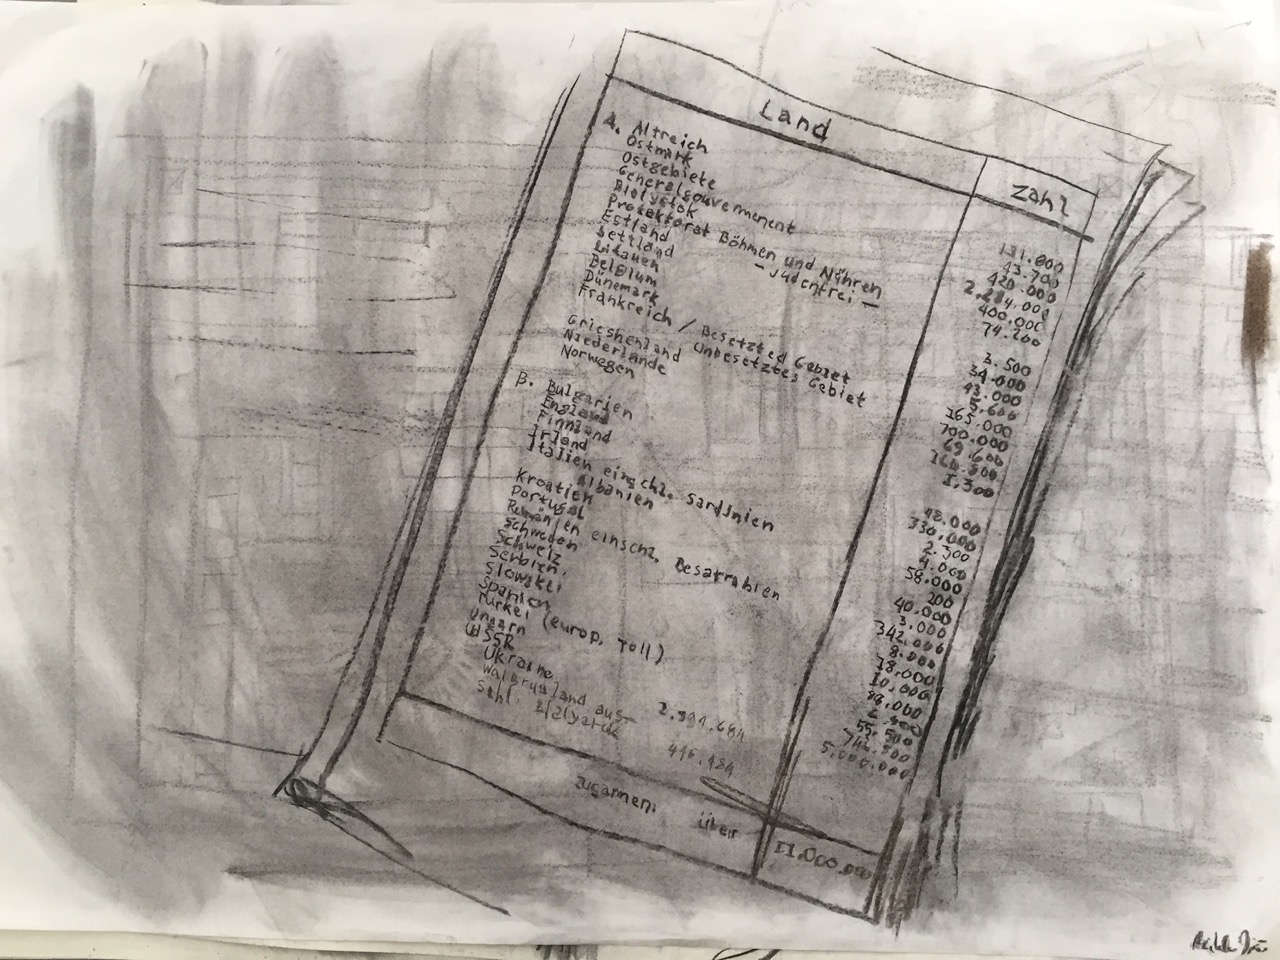 Land
Zahl
A. Altreich 131.800
Ostmark 43.700
Ostgebiete 420.000
Generalgouvernement 2.284.000
Bialystok 400.000
Protektorat Böhmen und Nähren 74.200
Estland - judenfrei -
Lettland 3.500
Litauen 34.000
Belgium 43.000
Dünemark 5.600
Frankreich / Besetzted Gebiet 165.000
Unbesetztes Gebiet 700.000
Grieshenland 69.600
Niederlande 160.800
Norwegen 1,300
B. Bulgarien 48.000
England 330.000
Finnland 2.300
Irland 4.000
Italien einschl. Sardinien 58.000
Albanien 200
Kroatien 40.000
Portugal 3.000
einschl. 342.000
Schweden 8.000
Schweiz 18.000
Serbien. 10.000
Spanien
Türkei (europ. Toll) 55.500
Ungarn 742.800
UdSSR 5.000.000
Ukraine
aus-
446.484
über 11.000.000